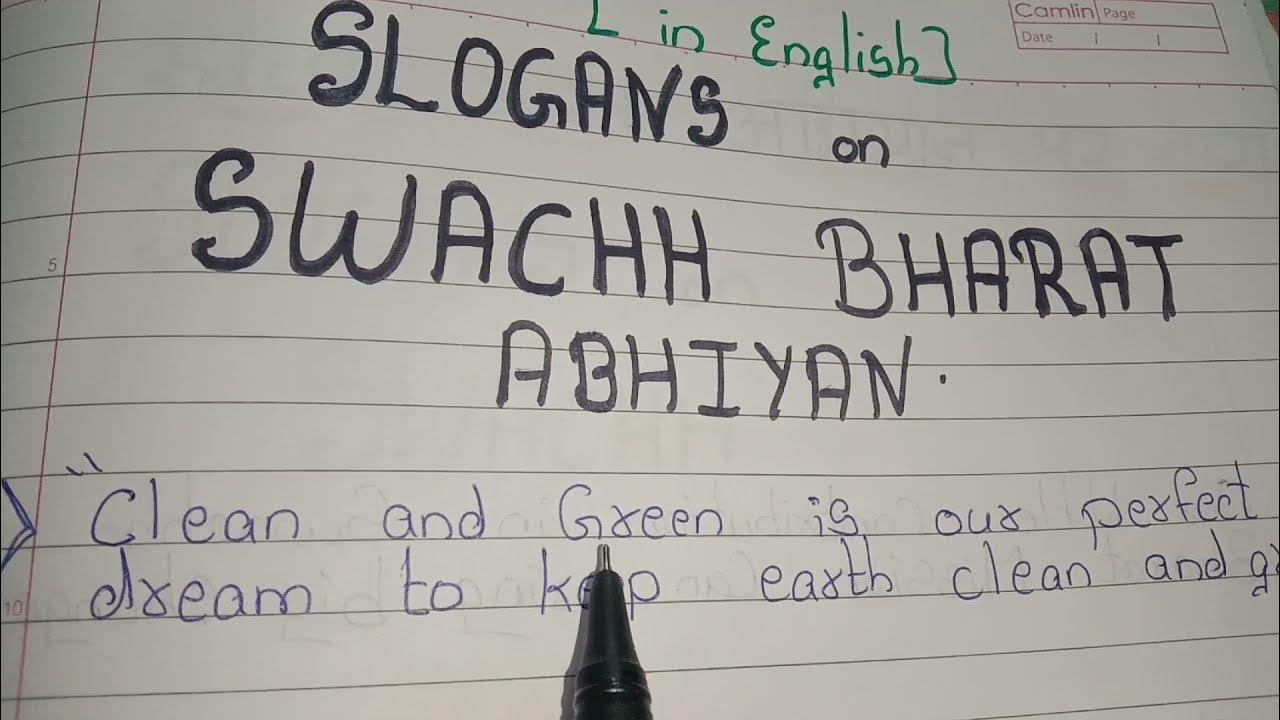 [ in English]
Camlin Page
Date
SLOGANS on
SWACHH BHARAT
ABHIYAN.
5
"Clean and Green is our perfect
10
dream to keep earth clean and